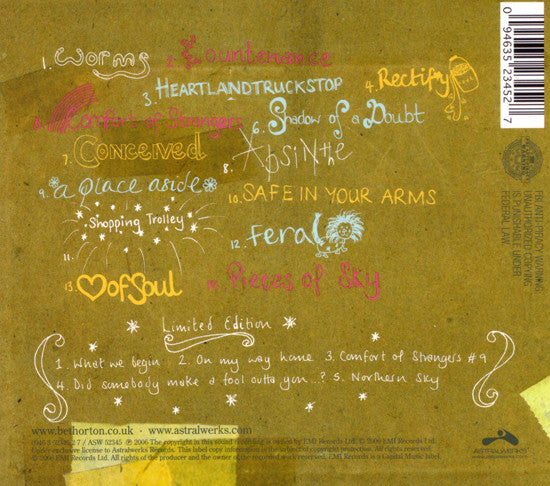 1. worms 2. Countenance
3. HEARTLANDTRUCKSTOP 4. Rectify
5. Comfort of Strangers 6. Shadow of a Doubt
7. Conceived 8. Absinthe
9. a place aside 10. SAFE IN YOUR ARMS
11. Shopping Trolley 12. Feral
13. ♥ of Soul 14. Pieces of Sky
Limited Edition
1. What we begin 2. On my way home 3. Comfort of Strangers #9
4. Did somebody make a fool outta you...? 5. Northern Sky
www.bethorton.co.uk · www.astralwerks.com
/ ASW 52345 ℗ 2006 The copyright in this sound recording is owned by EMI Records Ltd. © 2006 EMI Records Ltd.
Under exclusive license to Astralwerks Records. This label copy information is the subject of copyright protection. All rights reserved.
© 2006 EMI Records Ltd. All rights of the producer and the owner of the recorded work reserved. EMI Records is a Capitol Music label.
ASTRALWERKS
0 94635 23452 7
FBI ANTI-PIRACY WARNING:
UNAUTHORIZED COPYING
IS PUNISHABLE UNDER
FEDERAL LAW.